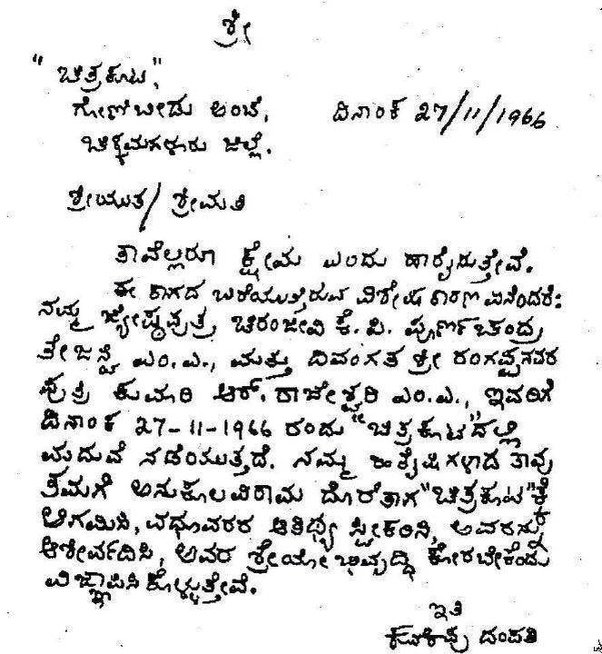 ಶ್ರೀ
"ಚಿತ್ರಕೂಟ",
ಗೋಣಿಬೀಡು ಅಂಚೆ, ದಿನಾಂಕ 27/11/1966
ಚಿಕ್ಕಮಗಳೂರು ಜಿಲ್ಲೆ.
ಶ್ರೀಯುತ/ ಶ್ರೀಮತಿ
ತಾವೆಲ್ಲರೂ ಕ್ಷೇಮ ಎಂದು ಹಾರೈಸುತ್ತೇವೆ.
ಈ ಕಾಗದ ಬರೆಯುತ್ತಿರುವ ವಿಶೇಷ ಕಾರಣ ಏನೆಂದರೆ:
ನಮ್ಮ ಜ್ಯೇಷ್ಠಪುತ್ರ ಚಿರಂಜೀವಿ ಕೆ. ಪಿ. ಪೂರ್ಣಚಂದ್ರ
ತೇಜಸ್ವಿ ಎಂ.ಎ., ಮತ್ತು ದಿವಂಗತ ಶ್ರೀ ರಂಗಪ್ಪನವರ
ಪುತ್ರಿ ಕುಮಾರಿ ಆರ್. ರಾಜೇಶ್ವರಿ ಎಂ.ಎ., ಇವರಿಗೆ
ದಿನಾಂಕ 27-11-1966 ರಂದು "ಚಿತ್ರಕೂಟ"ದಲ್ಲಿ
ಮದುವೆ ನಡೆಯುತ್ತದೆ. ನಮ್ಮ ಹಿತೈಷಿಗಳಾದ ತಾವು
ತಮಗೆ ಅನುಕೂಲವಿರಾಮ ದೊರೆತಾಗ "ಚಿತ್ರಕೂಟ"ಕ್ಕೆ
ಆಗಮಿಸಿ, ವಧೂವರರ ಆತಿಥ್ಯ ಸ್ವೀಕರಿಸಿ, ಅವರನ್ನು
ಆಶೀರ್ವದಿಸಿ, ಅವರ ಶ್ರೇಯೋಭಿವೃದ್ಧಿ ಕೋರಬೇಕೆಂದು
ವಿಜ್ಞಾಪಿಸಿಕೊಳ್ಳುತ್ತೇವೆ.
ಇತಿ
ಕುವೆಂಪು ದಂಪತಿ